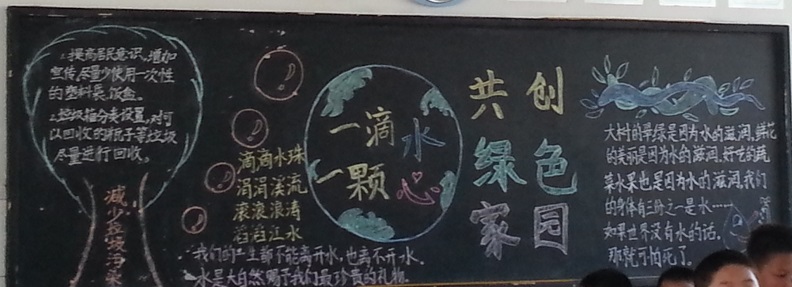 1.提高居民意识,增加
宣传.尽量少使用一次性
的塑料袋.饭盒。
2.垃圾箱分类设置,对可
以回收的瓶子等垃圾
尽量进行回收。
减少垃圾污染
滴滴水珠
涓涓溪流
滚滚浪涛
滔滔江水
一滴水
一颗心
我们的一生都不能离开水,也离不开水.
水是大自然赐予我们最珍贵的礼物.
共创
绿色
家园
大树的翠绿是因为水的滋润,鲜花
的美丽是因为水的滋润.好吃的蔬
菜水果也是因为水的滋润.我们
的身体有三分之一是水……
如果世界没有水的话,
那就可怕死了。